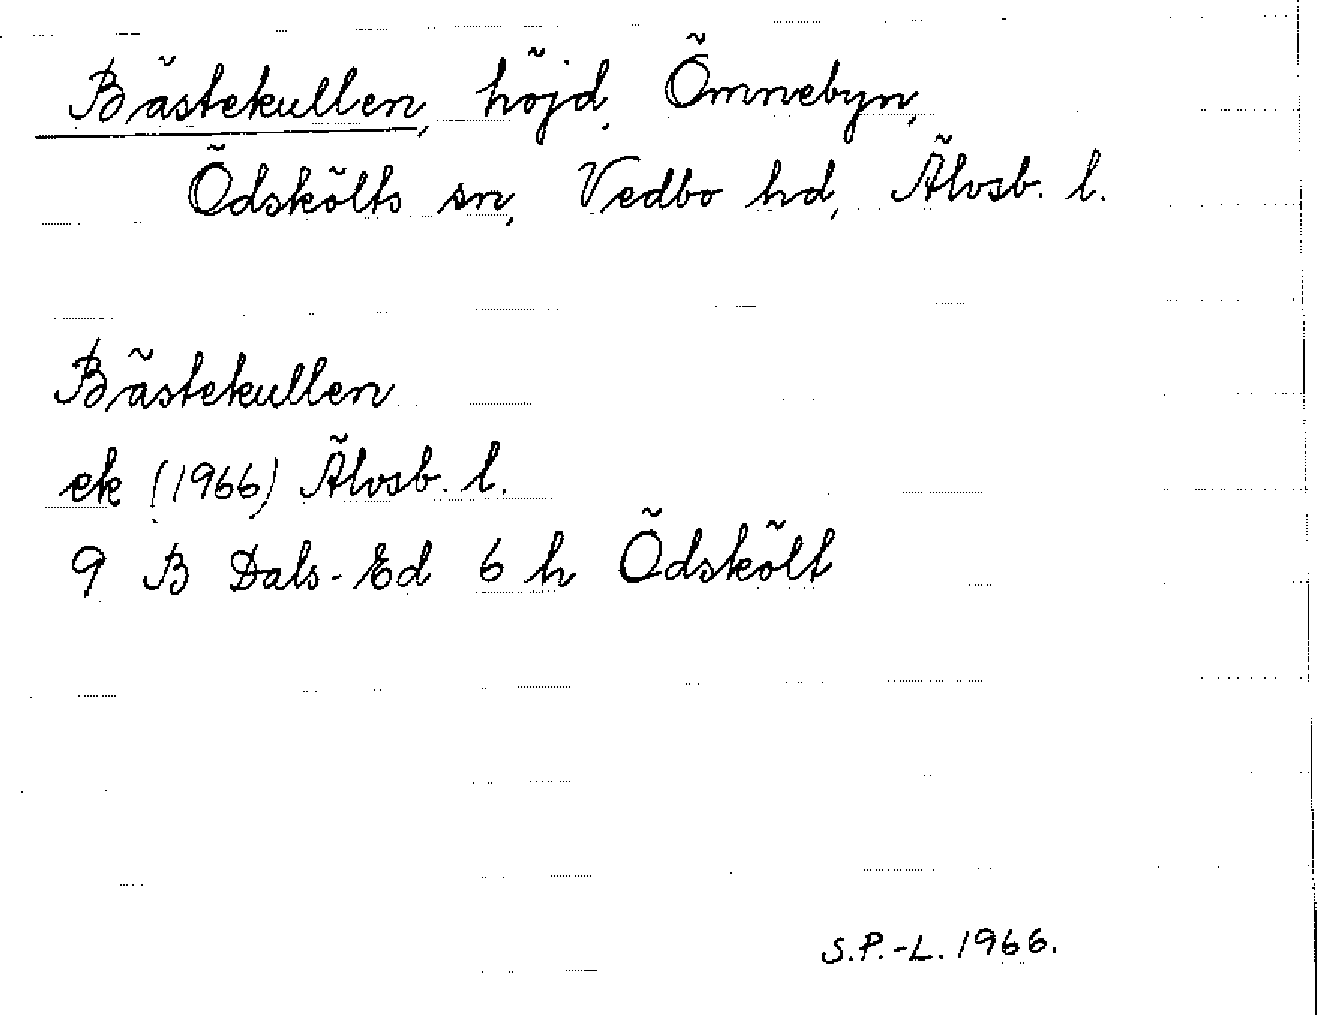 Bästekullen, höjd, Ömnebyn,
Ödskölts sn, Vedbo hd, Älvsb. l.
Bästekullen
ek (1966) Älvsb. l.
9 B Dals-Ed 6 h Ödskölt
S.P.-L. 1966.